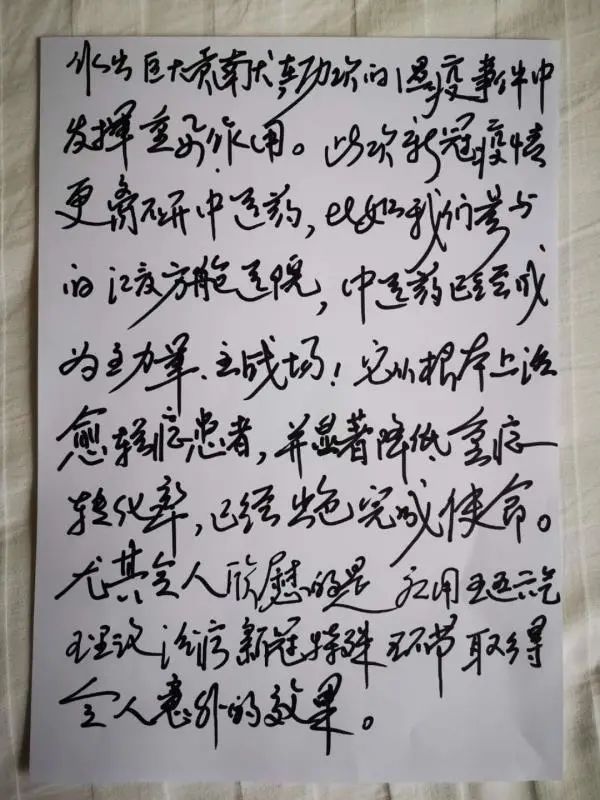 作出巨大贡献尤其功次的温疫事件中
发挥重要作用。此次新冠疫情
更离不开中医药，比如我们参与
的江夏方舱医院，中医药已经成
为主力军、主战场！它从根本上治
愈轻症患者，并显著降低重症
转化率，已经出色完成使命。
尤其令人欣慰的是 应用五运六气
理论治疗新冠特殊环节取得
令人意外的效果。